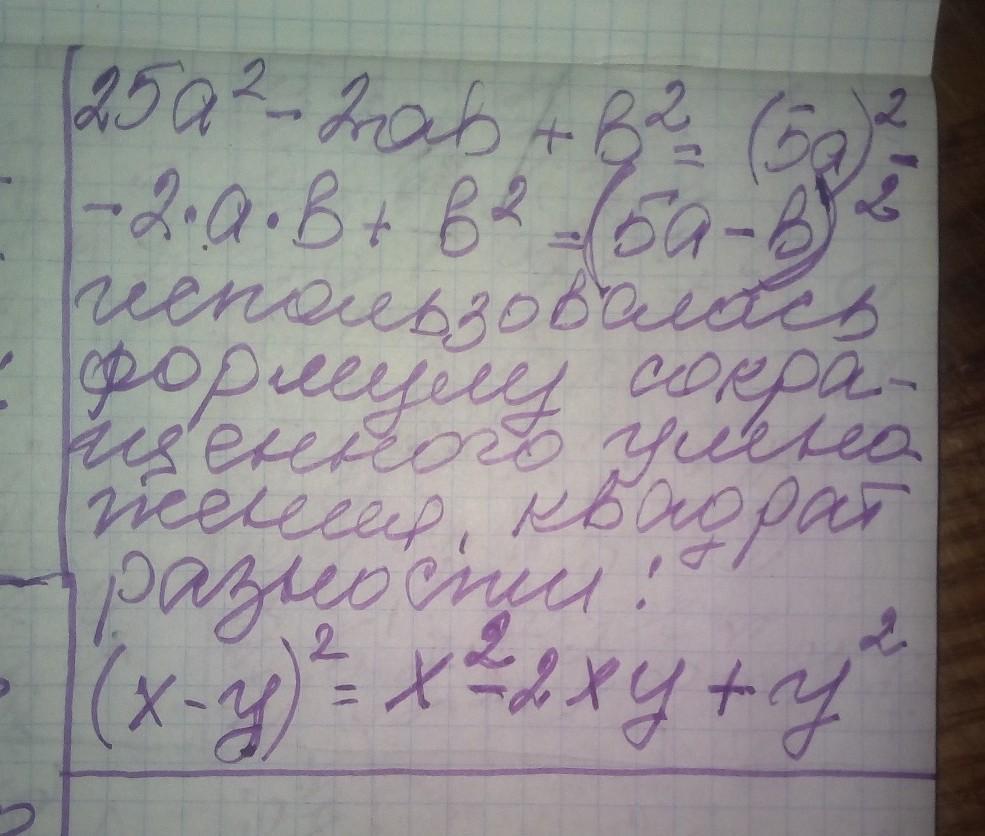 25a² - 2ab + b² = (5a)² -
- 2·a·b + b² = (5a - b)²
использовалась
формулу сокра-
щенного умно-
жения, квадрат
разности:
(x - y)² = x² - 2xy + y²